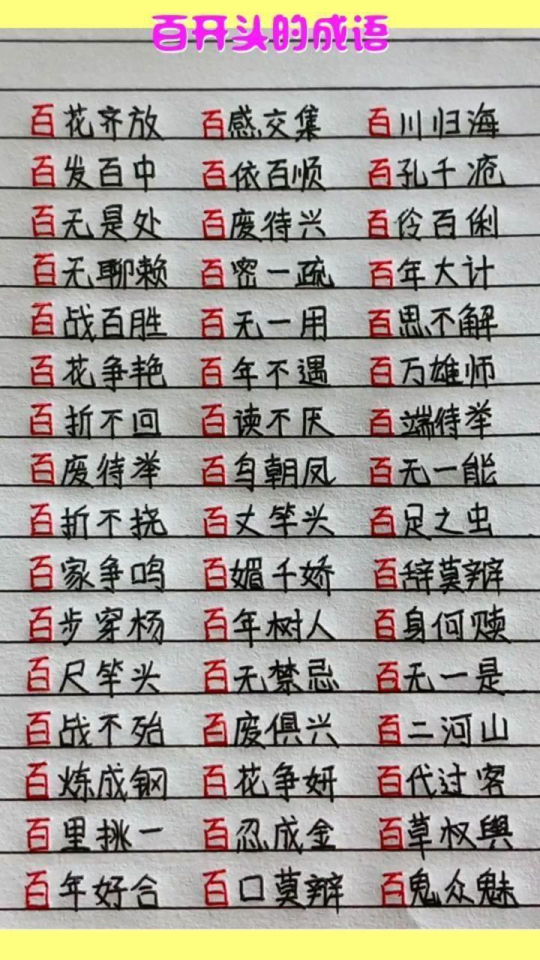 百开头的成语
百花齐放 百感交集 百川归海
百发百中 百依百顺 百孔千疮
百无是处 百废待兴 百伶百俐
百无聊赖 百密一疏 百年大计
百战百胜 百无一用 百思不解
百花争艳 百年不遇 百万雄师
百折不回 百读不厌 百端待举
百废待举 百鸟朝凤 百无一能
百折不挠 百丈竿头 百足之虫
百家争鸣 百媚千娇 百辞莫辩
百步穿杨 百年树人 百身何赎
百尺竿头 百无禁忌 百无一是
百战不殆 百废俱兴 百二河山
百炼成钢 百花争妍 百代过客
百里挑一 百忍成金 百草权舆
百年好合 百口莫辩 百鬼众魅